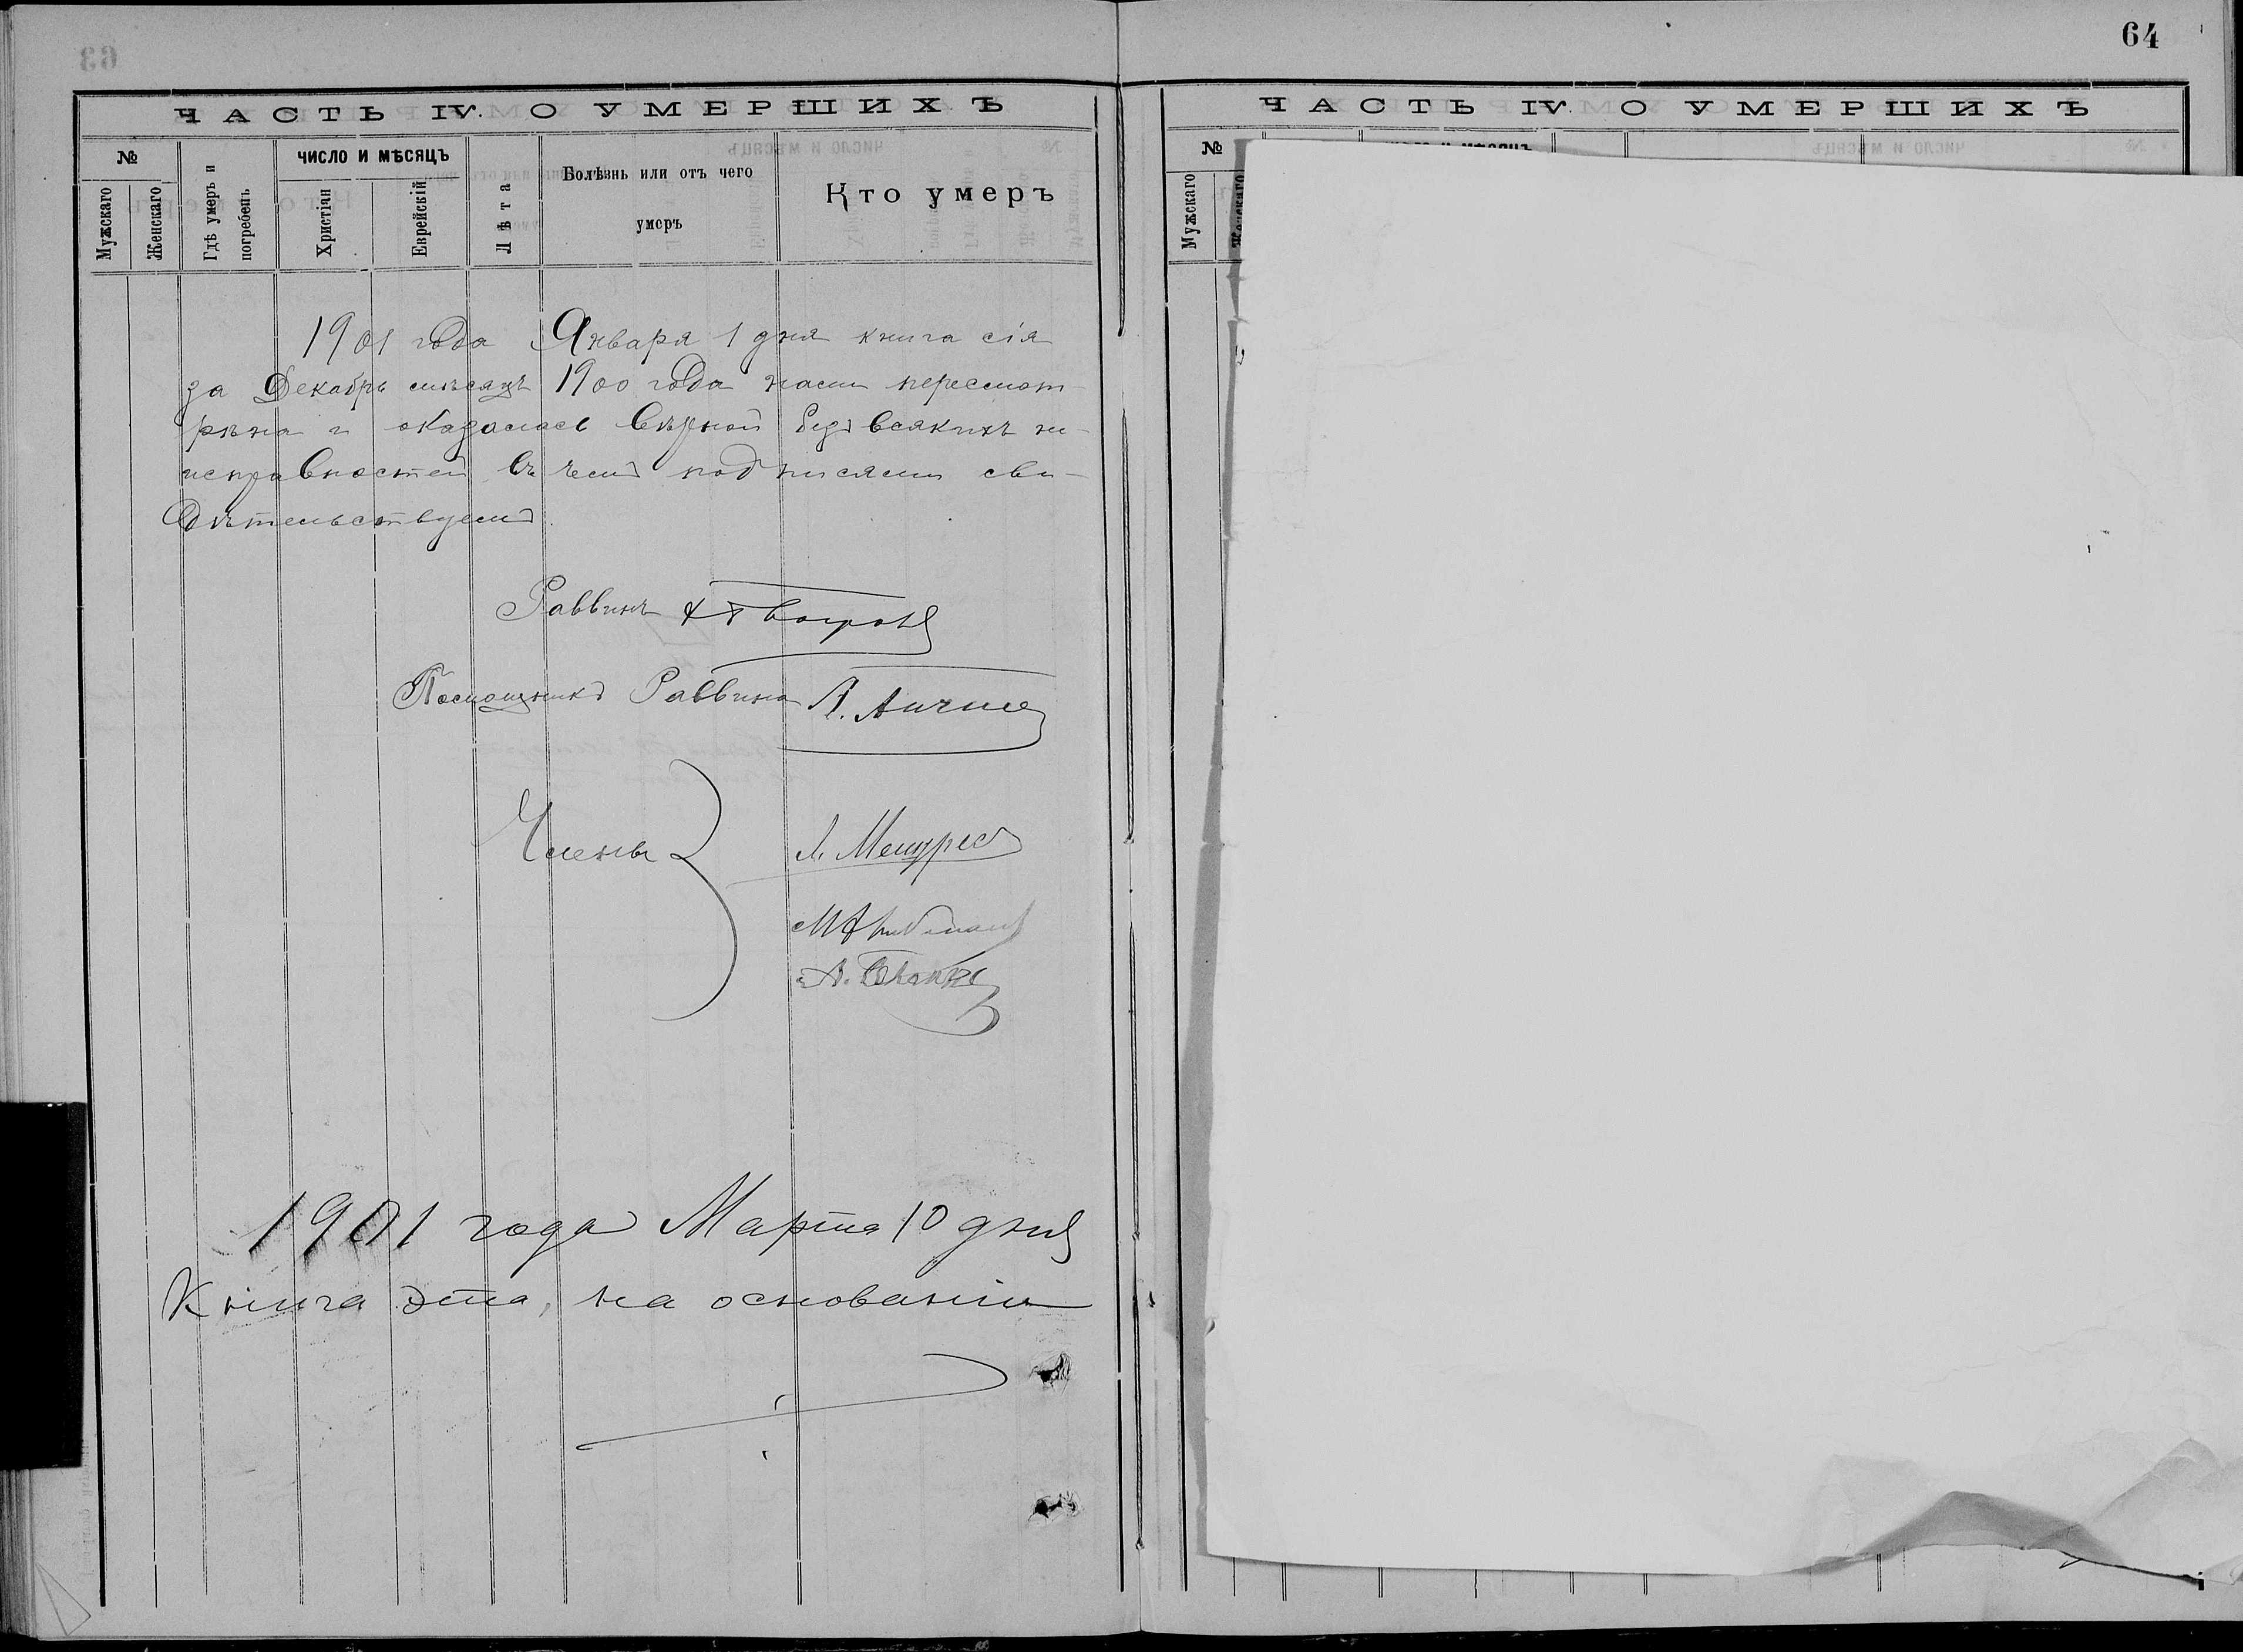 64
ЧАСТЬ IV. О УМЕРШИХЪ
№
Мужскаго
Женскаго
Гдѣ умеръ и погребенъ
ЧИСЛО И МѢСЯЦЪ
Христіан
Еврейскій
Лѣта
Болѣзнь или отъ чего умеръ
Кто умеръ
1901 года Января 1 дня книга сія
за Декабрь мѣсяцъ 1900 года нами пересмот-
рѣна и оказалась вѣрной безъ всякихъ не-
исправностей въ чемъ подписями сви-
дѣтельствуемъ.
Раввинъ
Помощникъ Раввина
Члены
1901 года Марта 10 дня
Книга эта, на основаніи
ЧАСТЬ IV. О УМЕРШИХЪ
№
Мужскаго
Женскаго